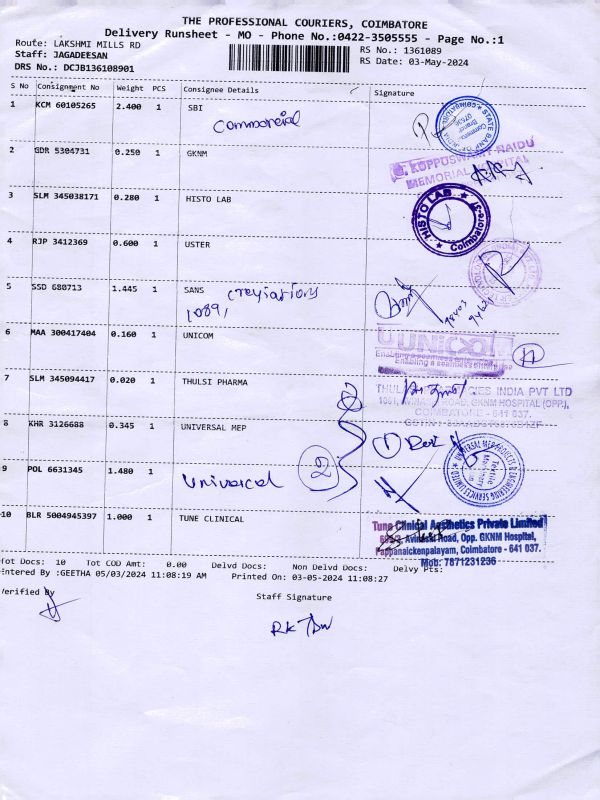 THE PROFESSIONAL COURIERS, COIMBATORE
Delivery Runsheet - MO - Phone No.:0422-3505555 - Page No.:1
Route: LAKSHMI MILLS RD
RS No.: 1361089
Staff: JAGADEESAN
RS Date: 03-May-2024
DRS No.: DCJB136108901
S No Consignment No Weight PCS Consignee Details Signature
1 KCM 60105265 2.400 1 SBI
Commercial
2 GDR 5304731 0.250 1 GKNM
KUPPUSWAMY NAIDU
MEMORIAL HOSPITAL
3 SLM 345038171 0.280 1 HISTO LAB
HISTO LAB
Coimbatore-37
4 RJP 3412369 0.600 1 USTER
5 SSD 680713 1.445 1 SANS creyiations
1089,
6 MAA 300417404 0.160 1 UNICOM
UNICOM
Enabling a seamless
7 SLM 345094417 0.020 1 THULSI PHARMA
INDIA PVT LTD
ROAD, GKNM HOSPITAL (OPP),
COIMBATORE - 641 037.
8 KHR 3126688 0.345 1 UNIVERSAL MEP
1
UNIVERSAL MEP PRODUCTS & ENGINEERING SERVICES LIMITED
9 POL 6631345 1.480 1
Universal 2
10 BLR 5004945397 1.000 1 TUNE CLINICAL
Tune Clinical Aesthetics Private Limited
Avinashi Road, Opp. GKNM Hospital,
Pappanaickenpalayam, Coimbatore - 641 037.
Mob: 7871231236
Tot Docs: 10 Tot COD Amt: 0.00 Delvd Docs: Non Delvd Docs: Delvy Pts:
Entered By :GEETHA 05/03/2024 11:08:19 AM Printed On: 03-05-2024 11:08:27
Verified By
Staff Signature